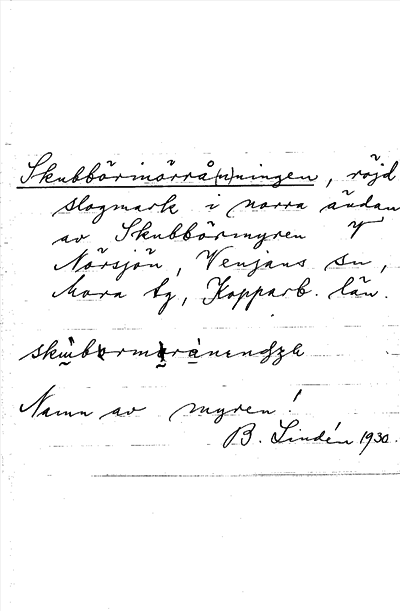 Skubbörmörrå(n)ningen, röjd
slogmark i norra ändan
av Skubbörmyren
Nörsjön, Venjans sn,
Mora tg, Kopparb. län.
Namn av myren!
B. Lindén 1930.